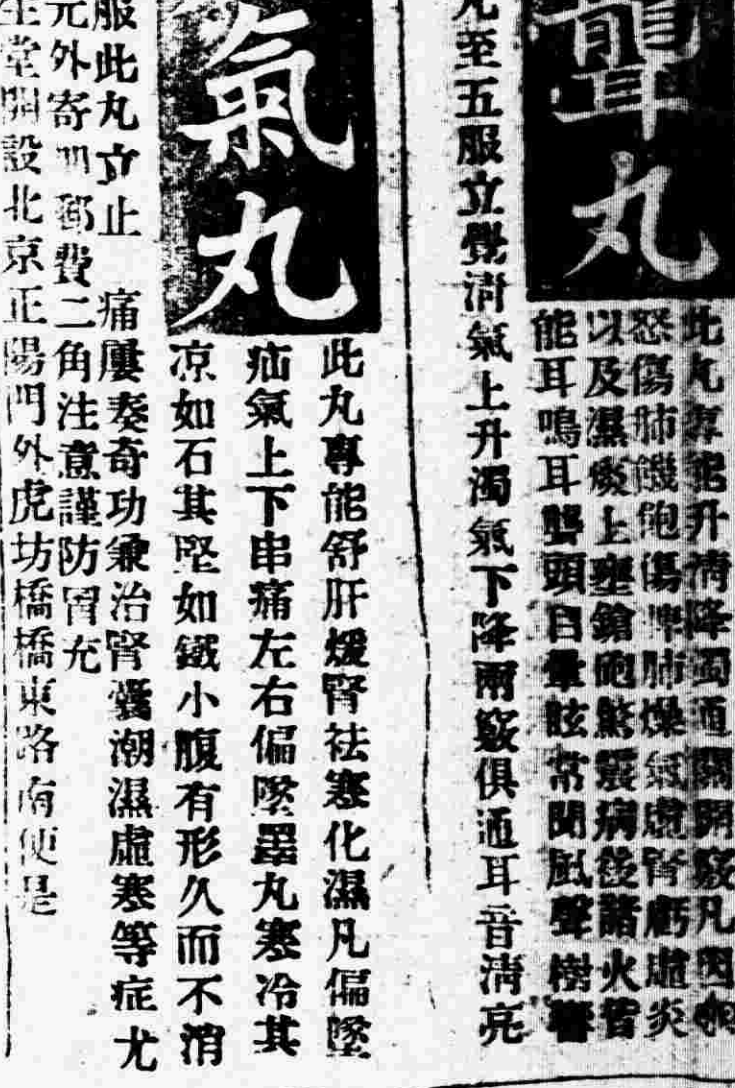 聾丸
此丸專能升清降濁通關開竅凡因惱
怒傷肺饑飽傷脾肺燥氣虛腎虧虛炎
以及濕痰上壅鎗砲驚震病後諸火皆
能耳鳴耳聾頭目暈眩常聞風聲樹響
至五服立覺清氣上升濁氣下降兩竅俱通耳音清亮
氣丸
此丸專能舒肝煖腎祛寒化濕凡偏墜
疝氣上下串痛左右偏墜睪丸寒冷其
凉如石其堅如鐵小腹有形久而不消
痛屢奏奇功兼治腎囊潮濕虛寒等症尤
服此丸立止
元外寄加郵費二角注意謹防冒充
堂開設北京正陽門外虎坊橋橋東路南便是